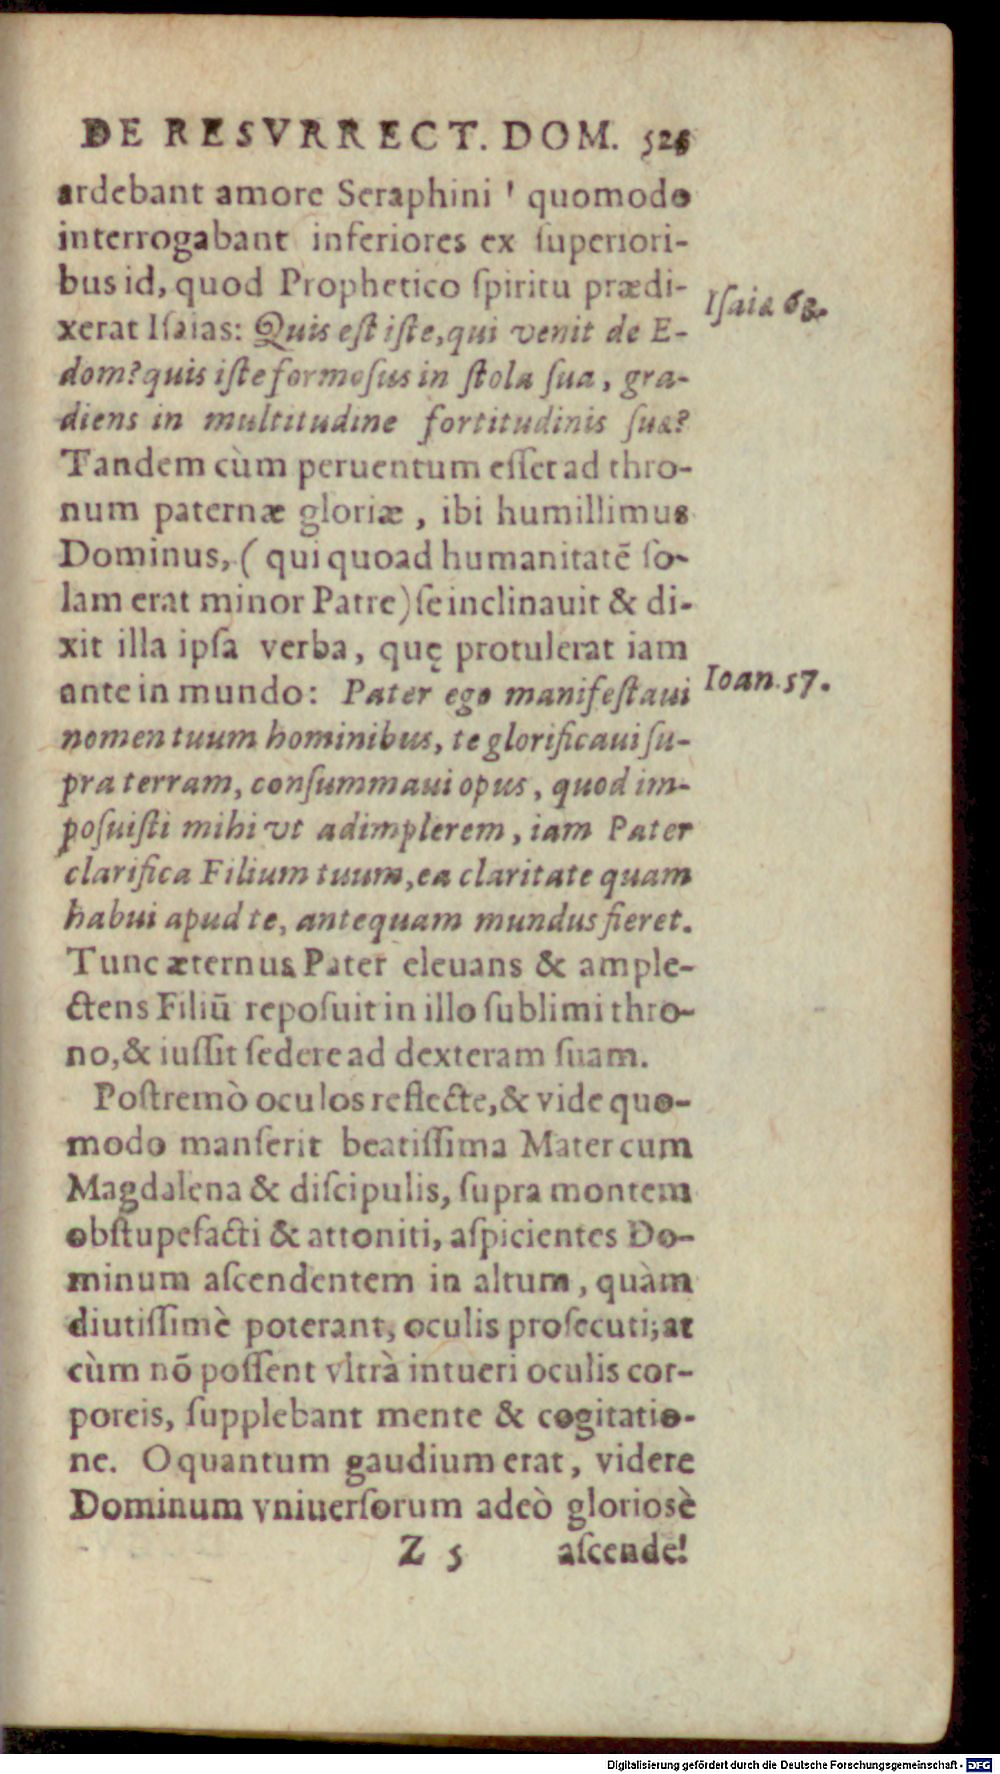 DE RESVRRECT. DOM. 525
ardebant amore Seraphini ' quomodo
interrogabant inferiores ex ſuperiori-
bus id, quod Prophetico ſpiritu prædi-
xerat Iſaias: Quis eſt iſte, qui venit de E-
Iſaiæ 63.
dom? quis iſte formoſus in ſtola ſua, gra-
diens in multitudine fortitudinis ſuæ?
Tandem cùm peruentum eſſet ad thro-
num paternæ gloriæ, ibi humillimus
Dominus, ( qui quoad humanitatē ſo-
lam erat minor Patre) ſe inclinauit & di-
xit illa ipſa verba, quę protulerat iam
ante in mundo: Pater ego manifeſtaui
Ioan. 17.
nomen tuum hominibus, te glorificaui ſu-
pra terram, conſummaui opus, quod im-
poſuiſti mihi vt adimplerem, iam Pater
clarifica Filium tuum, ea claritate quam
habui apud te, antequam mundus fieret.
Tunc æternus Pater eleuans & ample-
ctens Filiū repoſuit in illo ſublimi thro-
no, & iuſſit ſedere ad dexteram ſuam.
Poſtremò oculos reflecte, & vide quo-
modo manſerit beatiſſima Mater cum
Magdalena & diſcipulis, ſupra montem
obſtupefacti & attoniti, aſpicientes Do-
minum aſcendentem in altum, quàm
diutiſſimè poterant, oculis proſecuti; at
cùm nō poſſent vltrà intueri oculis cor-
poreis, ſupplebant mente & cogitatio-
ne. O quantum gaudium erat, videre
Dominum vniuerſorum adeò glorioſè
Z 5 aſcende!
Digitalisierung gefördert durch die Deutsche Forschungsgemeinschaft - DFG